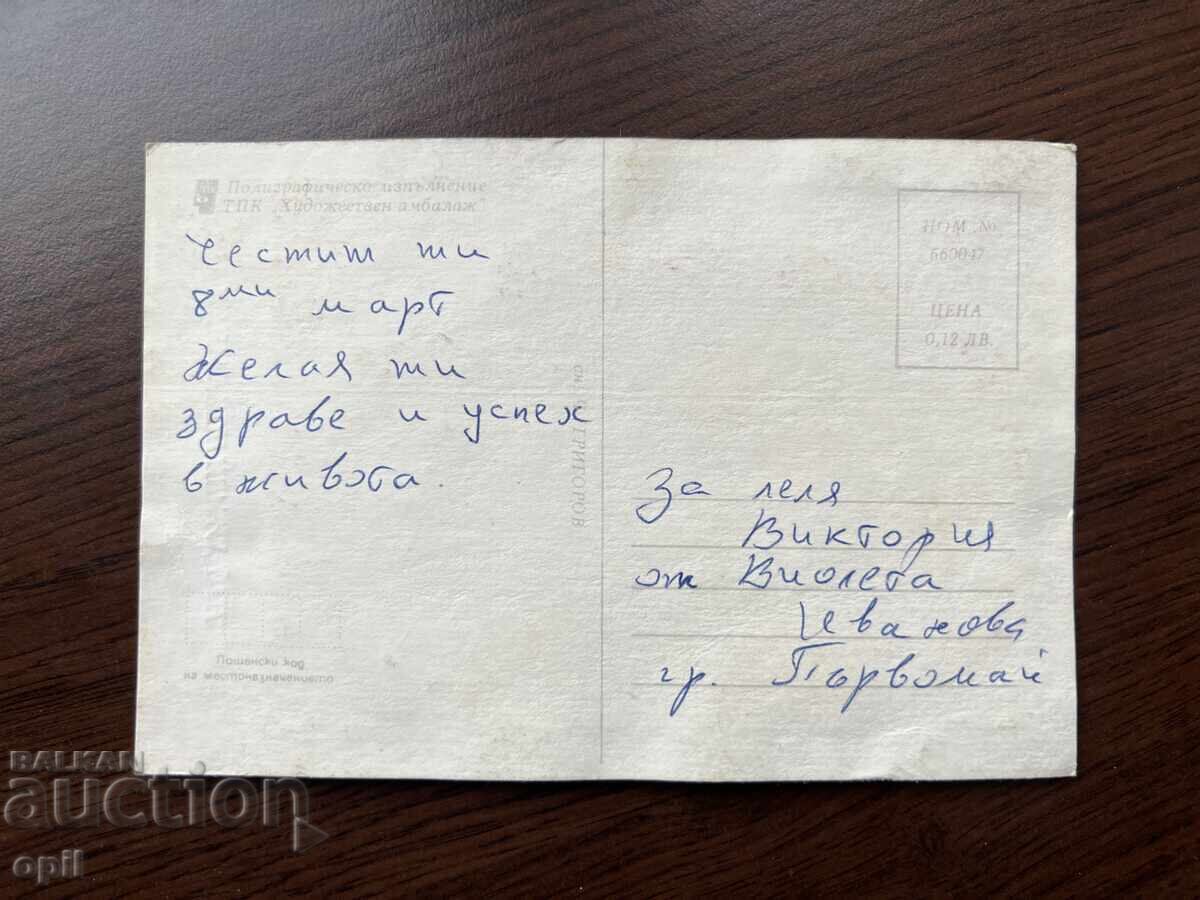 Полиграфическо изпълнение
ТПК „Художествен амбалаж"
Честит ти
8ми март
Желая ти
здраве и успех
в живота.
Пощенски код
на местоназначението
ГРИГОРОВ
НОМ. №
660047
ЦЕНА
0,12 ЛВ.
За леля
Виктория
от Виолета
Иванова
гр. Първомай
BALKAN
auction
opil